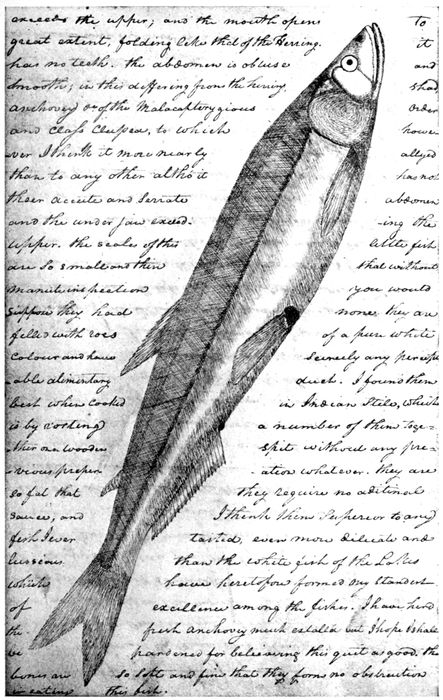 exceeds the upper; and the mouth opens to
great extent, folding like that of the Herring. it
has no teeth. the abdomen is obtuse and
smooth; in this differing from the herring, shad
anchovey &c of the Malacopterygious Order
and Class Clupea, to which howe-
ver I think it more nearly allyed
than to any other altho' it has not
their accute and serrate abdomen
and the under jaw exceed- ing the
upper. the scales of this little fish
are so small and thin that without
manute inspection you would
suppose they had none. they are
filled with roes of a pure white
colour and have scercely any percept
-able alimentary duct. I found them
best when cooked in Indian stile, which
is by roasting a number of them toge-
ther on a wooden spit without any pre-
-vious preper- ation whatever. they are
so fat that they require no aditional
sauce, and I think them superior to any
fish I ever tasted, even more dilicate and
lussious than the white fish of the Lakes
which have heretofore formed my standart
of excellence among the fishes. I have herd
the fresh anchovey much extolled but I hope I shall
be pardoned for believing this quit as good. the
bones are so soft and fine that they form no obstruction
in eating this fish.